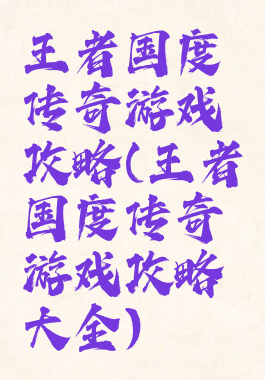 王者国度
传奇游戏
攻略(王者
国度传奇
游戏攻略
大全)